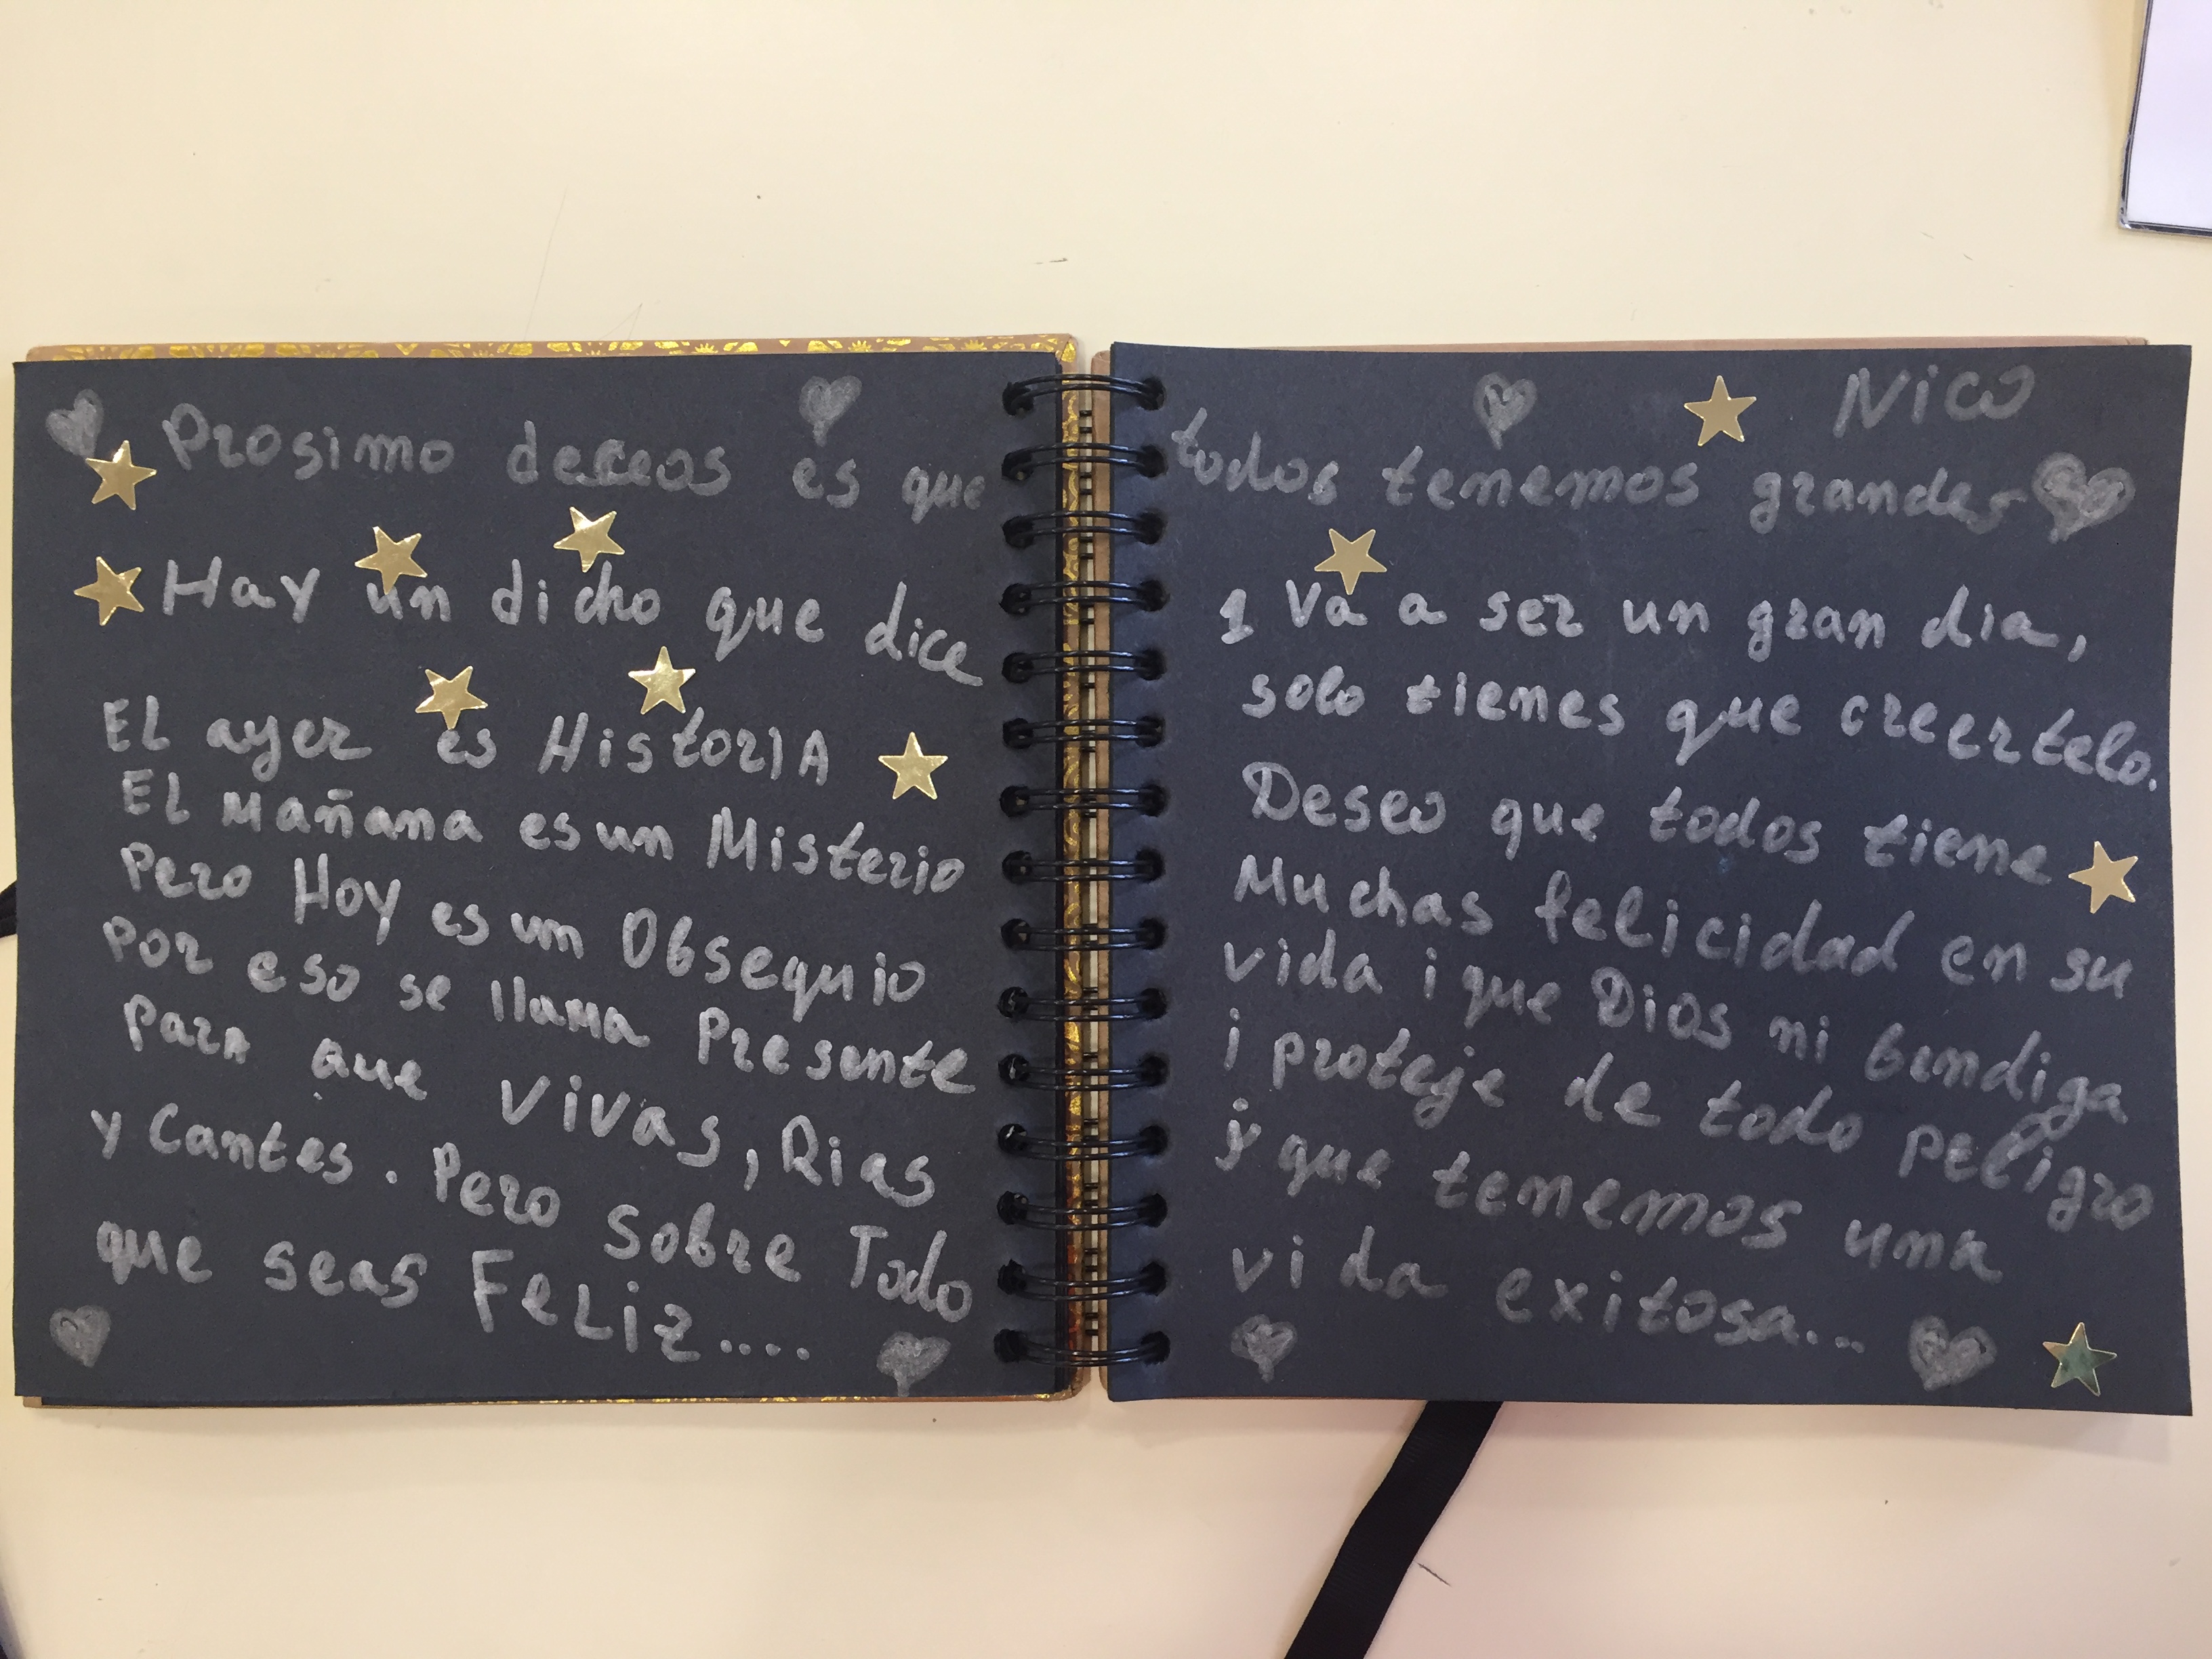 Prosimo deceos es que
Hay un dicho que dice
EL ayer es HistoriA
EL Mañana es un Misterio
Pero Hoy es un Obsequio
Por eso se llama Presente
Para que vivas, Rias
y Cantes. Pero sobre Todo
que seas FeLiz....
Nico
todos tenemos grandes
1 Va a ser un gran dia,
solo tienes que creertelo.
Deseo que todos tiene
Muchas felicidad en su
vida i que Dios ni bendiga
i proteje de todo peligro
y que tenemos una
vida exitosa...